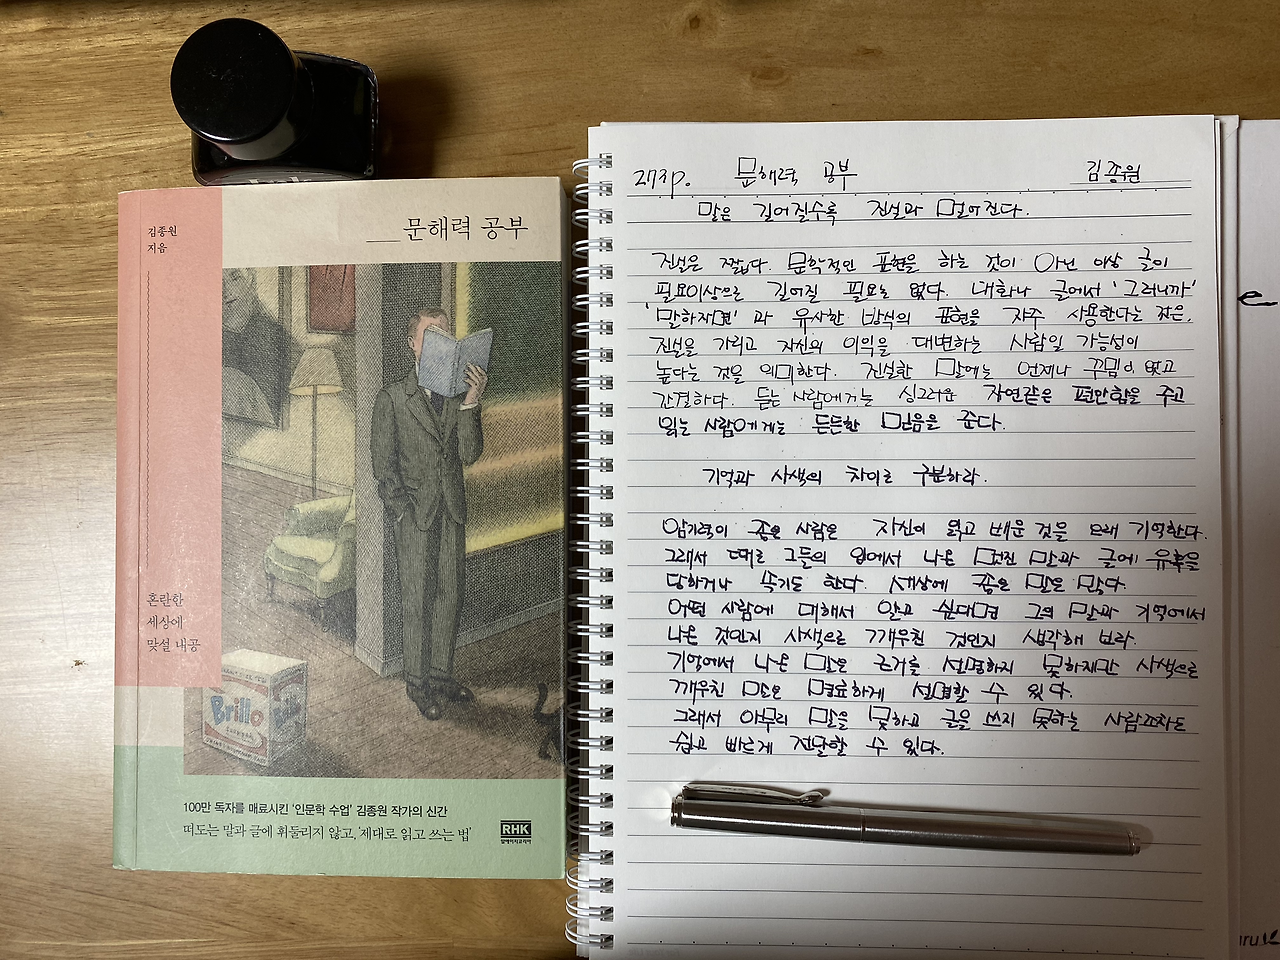 김종원
지음
문해력 공부
혼란한
세상에
맞설 내공
Brillo
100만 독자를 매료시킨 '인문학 수업' 김종원 작가의 신간
떠도는 말과 글에 휘둘리지 않고, '제대로 읽고 쓰는 법'
RHK
알에이치코리아
문해력 공부 김종원
말은 길어질수록 진실과 멀어진다.
진실은 짧다. 문학적인 표현을 하는 것이 아닌 이상 글이
필요이상으로 길어질 필요는 없다. 대화나 글에서 '그러니까'
'말하자면' 과 유사한 방식의 표현을 자주 사용한다는 것은,
진실을 가리고 자신의 이익을 대변하는 사람일 가능성이
높다는 것을 의미한다. 진실한 말에는 언제나 꾸밈이 없고
간결하다. 듣는 사람에게는 싱그러운 자연같은 편안함을 주고
읽는 사람에게는 든든한 믿음을 준다.
기억과 사색의 차이로 구분하라.
암기력이 좋은 사람은 자신이 읽고 배운 것을 오래 기억한다.
그래서 때로 그들의 입에서 나온 멋진 말과 글에 유혹을
당하거나 속기도 한다. 세상에 좋은 말은 많다.
어떤 사람에 대해서 알고 싶다면 그의 말과 기억에서
나온 것인지 사색으로 깨우친 것인지 생각해 보라.
기억에서 나온 말은 근거를 설명하지 못하지만 사색으로
깨우친 말은 명료하게 설명할 수 있다.
그래서 아무리 말을 못하고 글을 쓰지 못하는 사람조차도
쉽고 빠르게 전달할 수 있다.
e